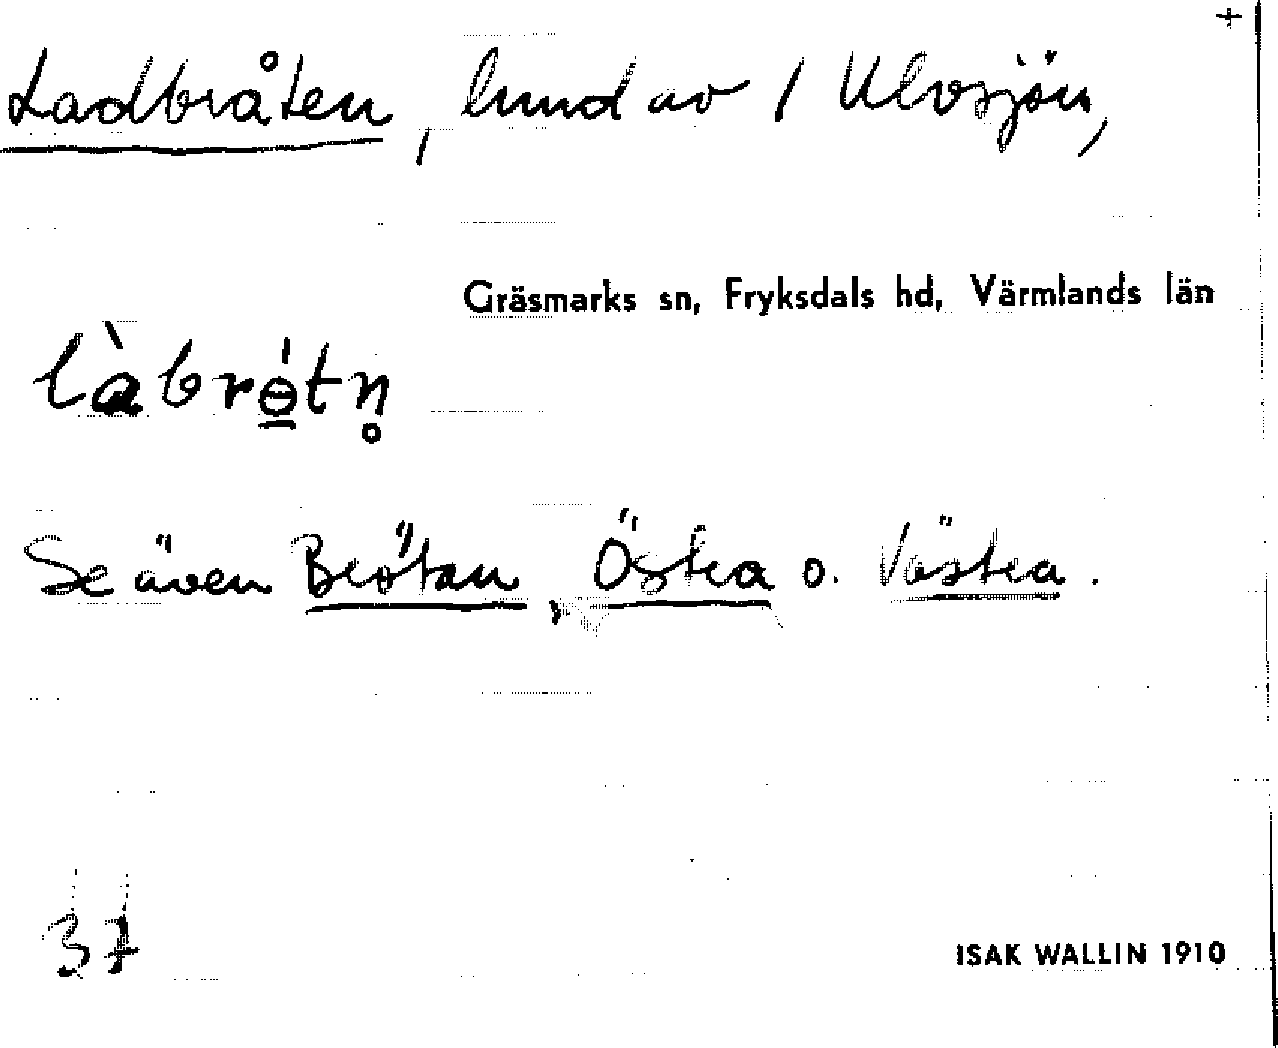 +
Ladbråten, hmd av 1 Ulvsjön,
Gräsmarks sn, Fryksdals hd, Värmlands län
làbrɵ́tn̥
Se även Brötan, Östra o. Västra.
37
ISAK WALLIN 1910